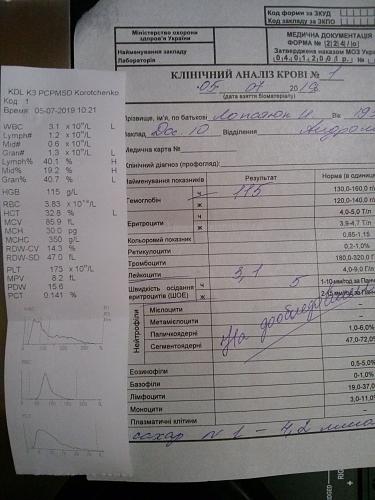 KDL K3 PCPM5D Korotchenko
Код : 1
Время 05-07-2019 10:21
WBC 3.1 x 10⁹/L L
Lymph# 1.2 x 10⁹/L
Mid# 0.6 x 10⁹/L
Gran# 1.3 x 10⁹/L L
Lymph% 40.1 % H
Mid% 19.2 % H
Gran% 40.7 % L
HGB 115 g/L
RBC 3.83 x 10¹²/L
HCT 32.8 % L
MCV 85.9 fL
MCH 30.0 pg
MCHC 350 g/L
RDW-CV 14.3 %
RDW-SD 47.0 fL
PLT 173 x 10⁹/L
MPV 8.2 fL
PDW 15.6
PCT 0.141 %
WBC
RBC
PLT
Код форми за ЗКУД
Код закладу за ЗКПО
Міністерство охорони
здоров'я України
Найменування закладу
Лабораторія
МЕДИЧНА ДОКУМЕНТАЦІЯ
ФОРМА № 224/о
Затверджена наказом МОЗ України
04.01.2001 р. №
КЛІНІЧНИЙ АНАЛІЗ КРОВІ № 1
05 07 2019
(дата взяття біоматеріалу)
Прізвище, ім'я, по батькові
Заклад Відділення
Медична карта №
Клінічний діагноз (профогляд):
Найменування показників Результат Норма (в одиницях
Гемоглобін ч 115 130,0-160,0 г/л
ж 120,0-140,0 г/л
Еритроцити ч 4,0-5,0 Т/л
ж 3,9-4,7 Т/л
Кольоровий показник 0,85-1,15
Ретикулоцити 0,2-1,0%
Тромбоцити 180,0-320,0 Г/л
Лейкоцити 3,1 4,0-9,0 Г/л
Швидкість осідання ч 5 1-10 мм/год за Панч
еритроцитів (ШОЕ) ж 2-15 мм/год за Панч
Нейтрофіли
Мієлоцити
Метамієлоцити
Паличкоядерні 1,0-6,0%
Сегментоядерні 47,0-72,0%
На дообследование
Еозинофіли 0,5-5,0%
Базофіли 0-1,0%
Лімфоцити 19,0-37,0
Моноцити 3,0-11,0
Плазматичні клітини
сахар N 1 – 4,2